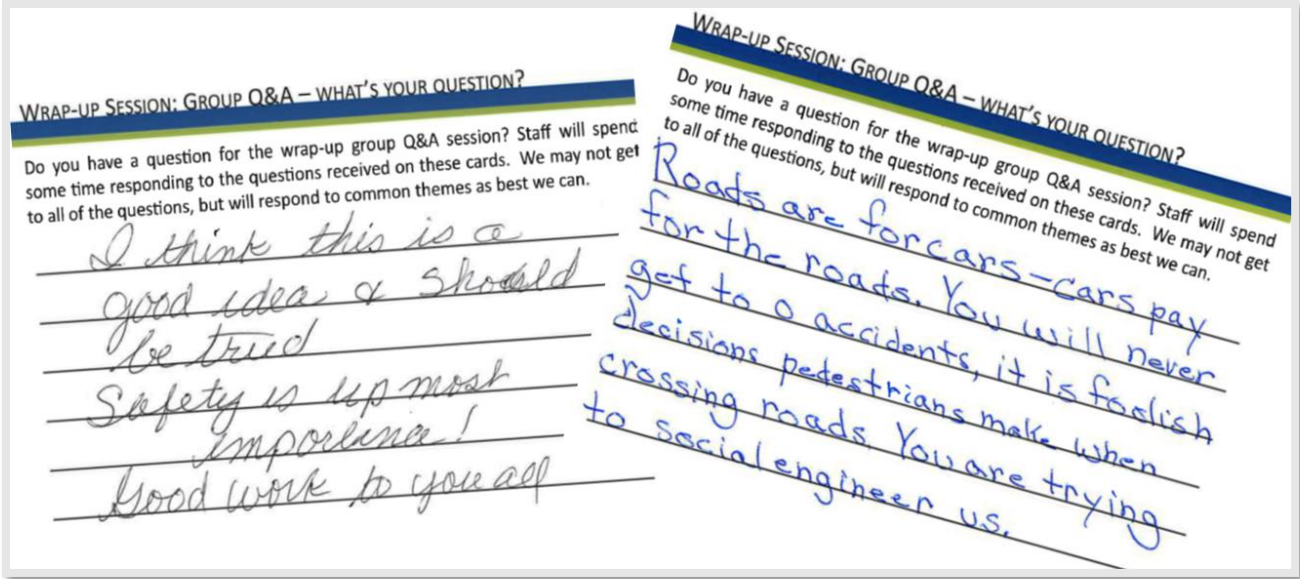 WRAP-UP SESSION: GROUP Q&A – WHAT'S YOUR QUESTION?
Do you have a question for the wrap-up group Q&A session? Staff will spend
some time responding to the questions received on these cards. We may not get
to all of the questions, but will respond to common themes as best we can.
I think this is a
good idea & should
be tried
Safety is up most
importance!
Good work to you all
WRAP-UP SESSION: GROUP Q&A – WHAT'S YOUR QUESTION?
Do you have a question for the wrap-up group Q&A session? Staff will spend
some time responding to the questions received on these cards. We may not get
to all of the questions, but will respond to common themes as best we can.
Roads are for cars – cars pay
for the roads. You will never
get to 0 accidents, it is foolish
decisions pedestrians make when
crossing roads. You are trying
to social engineer us.